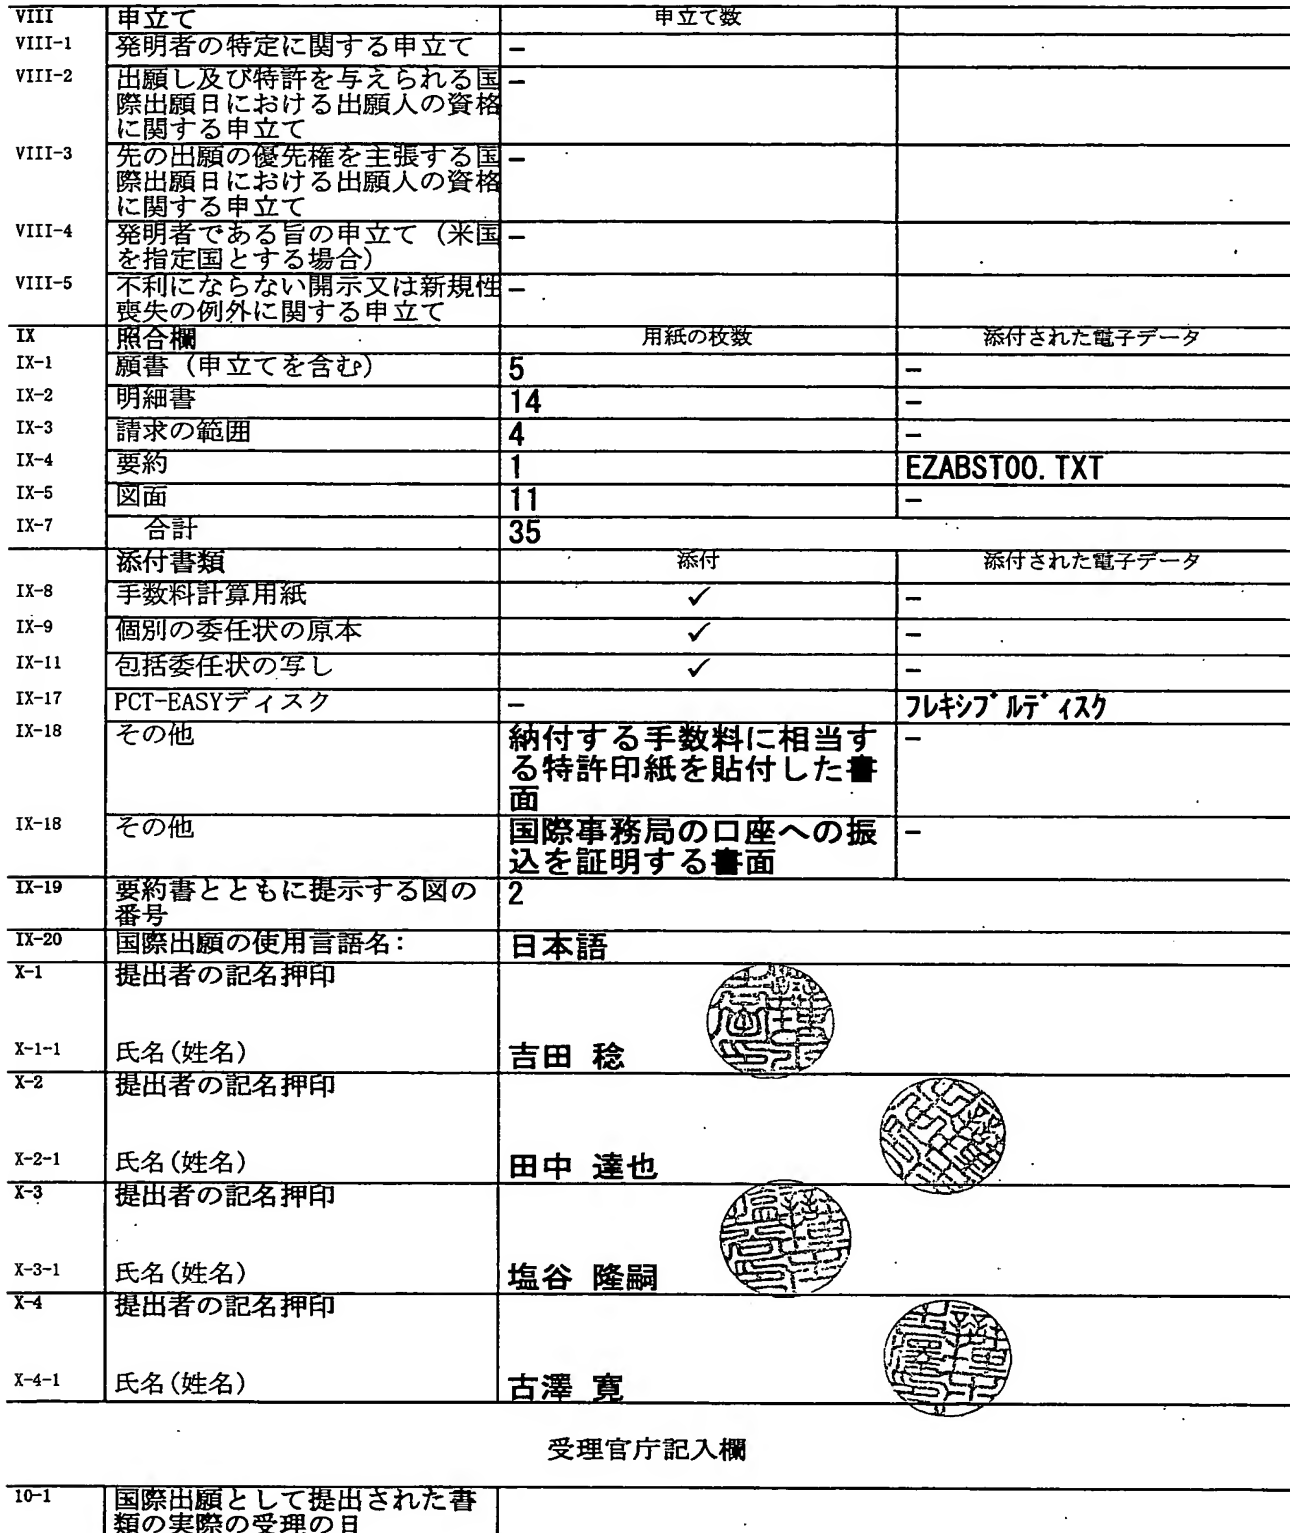 VIII 申立て 申立て数
VIII-1 発明者の特定に関する申立て –
VIII-2 出願し及び特許を与えられる国 –
際出願日における出願人の資格
に関する申立て
VIII-3 先の出願の優先権を主張する国 –
際出願日における出願人の資格
に関する申立て
VIII-4 発明者である旨の申立て（米国 –
を指定国とする場合）
VIII-5 不利にならない開示又は新規性 –
喪失の例外に関する申立て
IX 照合欄 用紙の枚数 添付された電子データ
IX-1 願書（申立てを含む） 5 –
IX-2 明細書 14 –
IX-3 請求の範囲 4 –
IX-4 要約 1 EZABST00.TXT
IX-5 図面 11 –
IX-7 合計 35
添付書類 添付 添付された電子データ
IX-8 手数料計算用紙 ✓ –
IX-9 個別の委任状の原本 ✓ –
IX-11 包括委任状の写し ✓ –
IX-17 PCT-EASYディスク – ﾌﾚｷｼﾌﾞﾙﾃﾞｨｽｸ
IX-18 その他 納付する手数料に相当す –
る特許印紙を貼付した書
面
IX-18 その他 国際事務局の口座への振 –
込を証明する書面
IX-19 要約書とともに提示する図の 2
番号
IX-20 国際出願の使用言語名： 日本語
X-1 提出者の記名押印
X-1-1 氏名(姓名) 吉田 稔
X-2 提出者の記名押印
X-2-1 氏名(姓名) 田中 達也
X-3 提出者の記名押印
X-3-1 氏名(姓名) 塩谷 隆嗣
X-4 提出者の記名押印
X-4-1 氏名(姓名) 古澤 寛
受理官庁記入欄
10-1 国際出願として提出された書
類の実際の受理の日